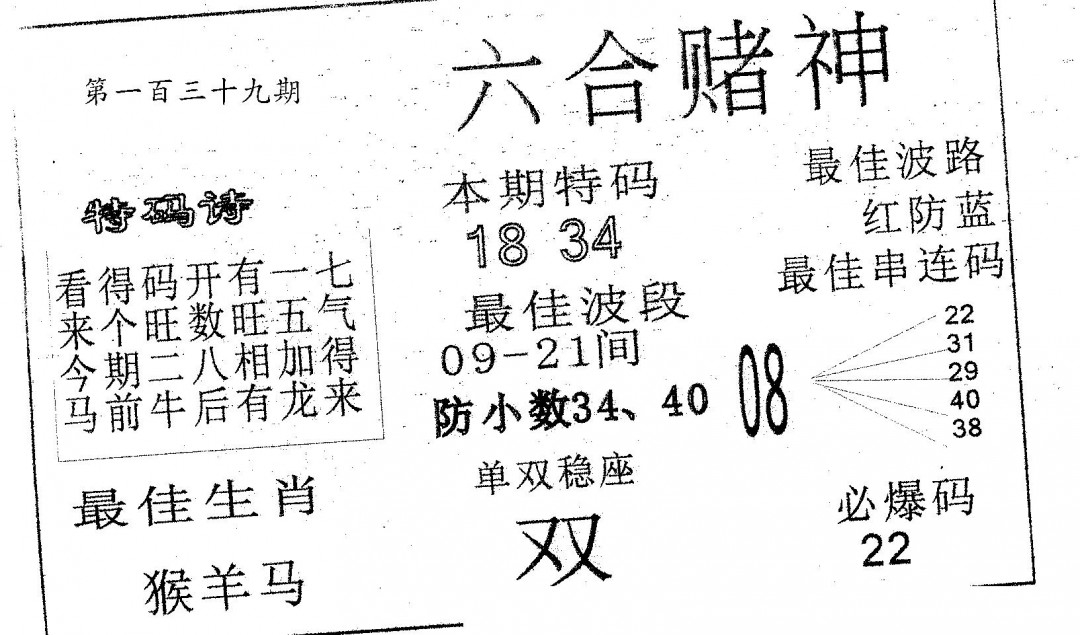 六合赌神
第一百三十九期
特码诗
看得码开有一七
来个旺数旺五气
今期二八相加得
马前牛后有龙来
最佳生肖
猴羊马
本期特码
18 34
最佳波段
09-21间
防小数34、40
单双稳座
双
最佳波路
红防蓝
最佳串连码
08
22
31
29
40
38
必爆码
22